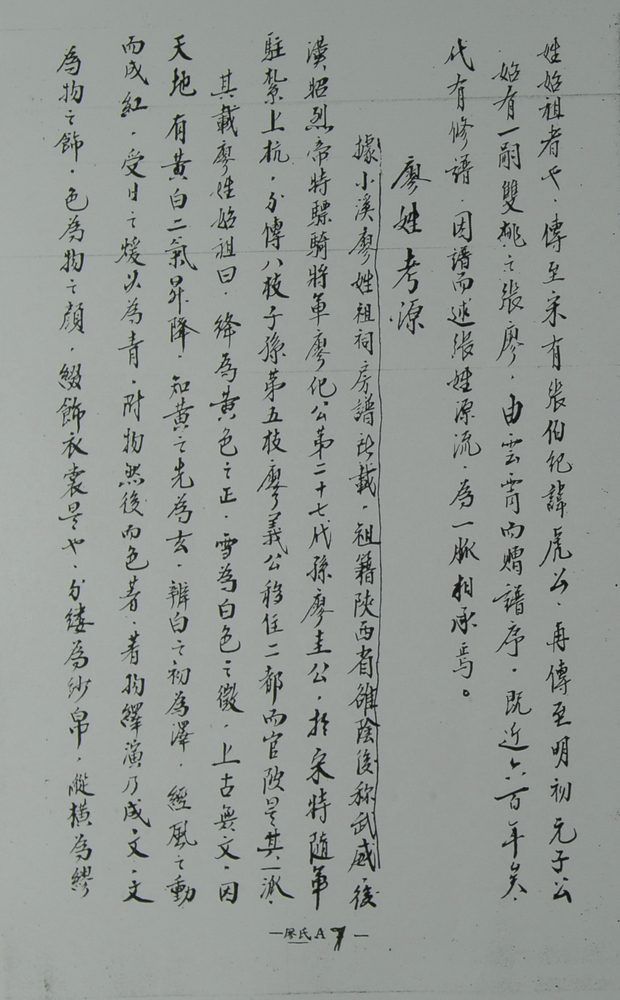 姓始祖者也．傳至宋有張伯紀諱虎公．再傳至明初元子公
始有一嗣雙桃之張廖．由雲霄而贈譜序．既近六百年矣．
代有修譜．因譜而述張姓源流．為一脈相承焉。
廖姓考源
據小溪廖姓祖祠房譜所載．祖籍陝西省雒陰後称武威後
漢昭烈帝特驃騎將軍廖化公第二十七代孫廖圭公．於宋特隨軍
駐紮上杭．分傳八枝子孫第五枝廖義公移住二都而官陂是其一派．
其載廖姓始祖曰．絳為黃色之正．雪為白色之徵．上古無文．因
天地有黃白二氣昇降．知黃之先為玄．辨白之初為澤．經風之動
而成紅．受日之煖以為青．附物然後而色著．著物繹演乃成文．文
為物之飾．色為物之顏．綴飾衣裳是也．分縷為紗帛．縱橫為繆
—廖氏A7—